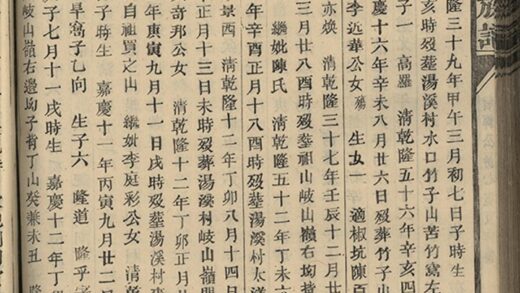 族譜
隆三十九年甲午三月初七日子時生
亥時歿塟湯溪村水口竹子山苦竹窩左
子一 高羅 清乾隆五十六年辛亥四
慶十六年辛未八月廿六日歿葬竹子山
李近華公女 生女一 適椒坑陳百
亦煥 清乾隆三十七年壬辰十二月
三月廿八酉時歿塟祖山岐山嶺右坳
繼妣陳氏 清乾隆五十二年丁未
年辛酉正月十八酉時歿塟湯溪村大
景西 清乾隆十二年丁卯八月十四日
年正月十三日未時歿葬湯溪村岐山嶺
奇邦公女 清乾隆十二年丁卯正月
年庚寅九月十一日戌時歿塟湯溪村
自祖買之山 繼妣李庭彩公女 清
子時生 嘉慶十一年丙寅九月廿二
旱窩子乙向 生子六 隆道 隆乎
子七月十一戌時生 嘉慶十二年丁
岐山嶺右邊坳子背丁山癸兼未丑 隆